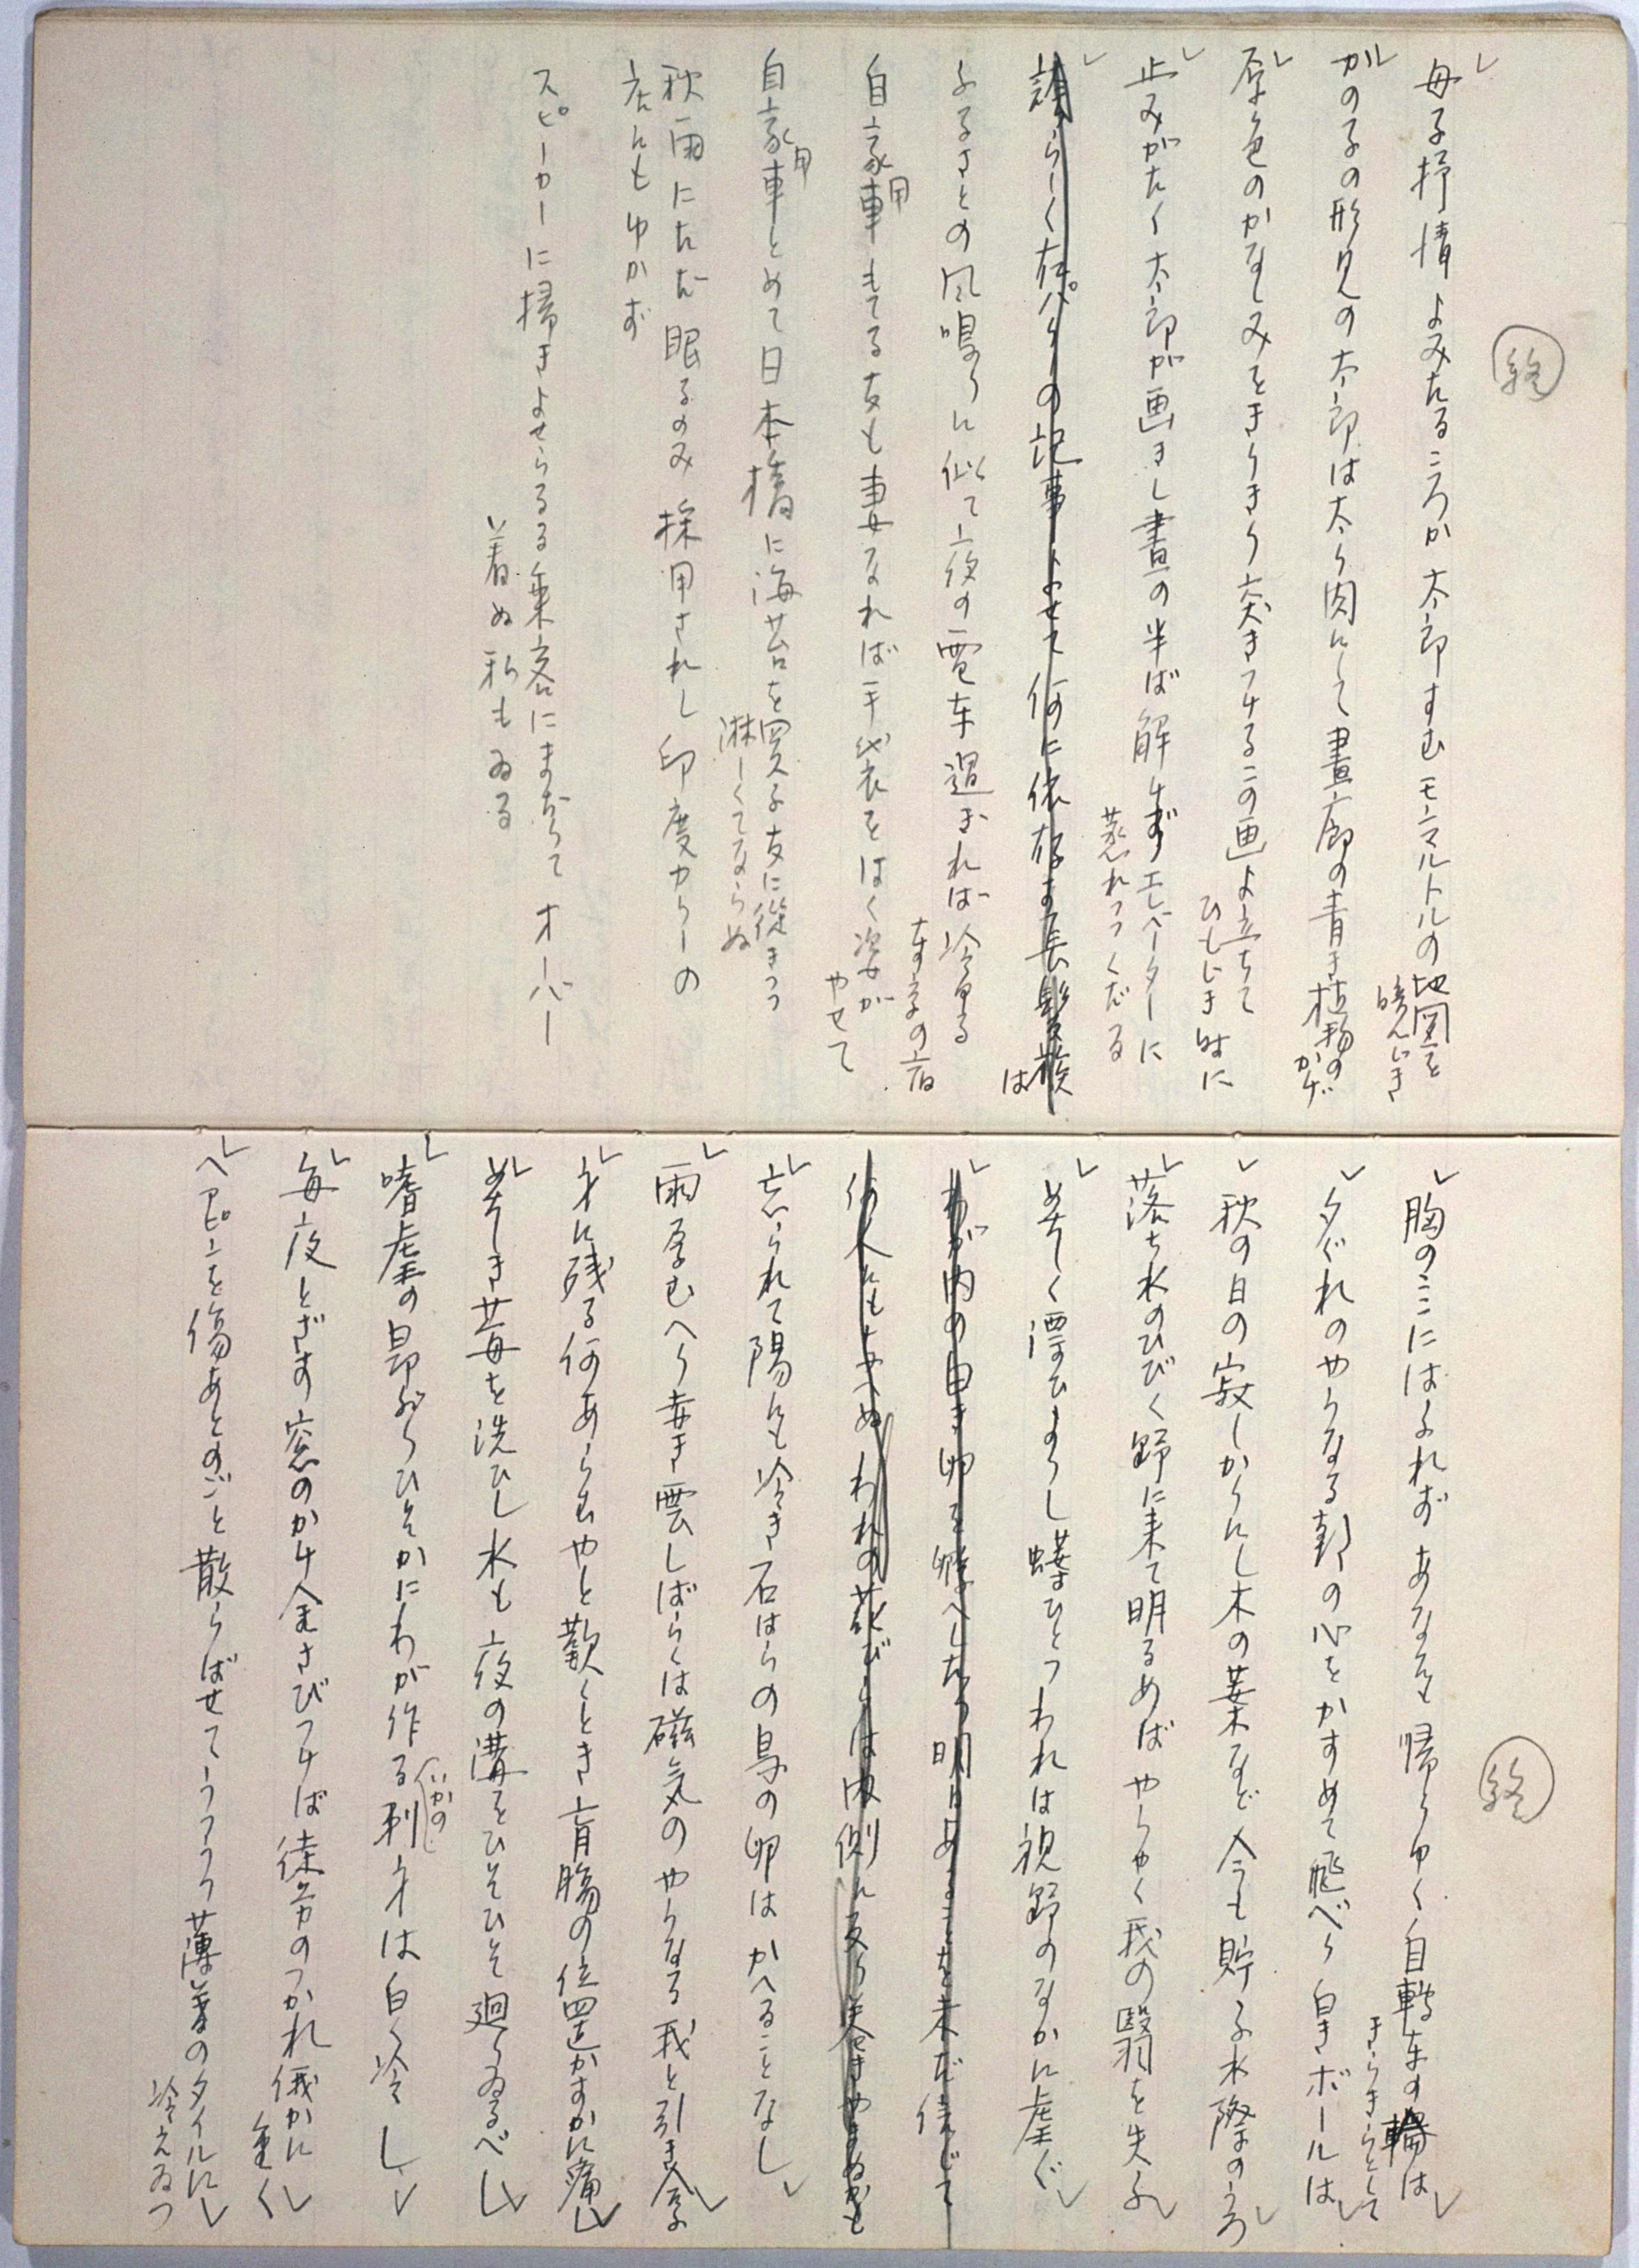 終
母子抒情よみたるころか太郎すむモンマルトルの地図を
暁んじき
かの子の形見の太郎は太り肉にして畫廊の青き植物の
かげ
原色のかなしみをきりきり突きつけるこの画よ立ちて
ひもじき時に
止みがたく太郎が画きし畫の半ば解せずエレベーターに
蒸れつつくだる
誇らしく在パリーの記事よせて何に依存す長髪族
は
ふるさとの風鳴りに似て夜の電車過ぎれば冷ゆる
自家用車もてる友も妻なれば手袋をはく姿が
やせて
自家用車とめて日本橋に海苔を買ふ友に従きつつ
淋しくてならぬ
秋雨にただ眠るのみ採用されし印度カリーの
店にもゆかず
スピーカーに掃きよせらるる乗客にまぢりてオーバー
着ぬ私もゐる
終
胸のここにはふれずあなたも帰りゆく自転車の輪は
きらきらとして
夕ぐれのやうなる朝の心をかすめて飛べり白きボールは
秋の日の寂しからにし木の葉など今も貯ふ水際のうろ
落ち水のひびく野に来て明るめばやうやく我の翳を失ふ
美しく漂ひよりし蝶ひとつわれは視野のなかに虐ぐ
わが内の白き卵を孵へしたる明日あることを未だ信じて
何人にも告げぬわれの花びらは内側に反り巻きやまぬかも
忘られて陽にも冷き石はらの鳥の卵はかへることなし
雨孕むへり赤き雲しばらくは磁気のやうなる我と引き合ふ
身に残る何あらむやと歎くとき盲腸の位置かすかに痛し
美しき苺を洗ひし水も夜の溝をひそひそ廻りゐるべし
嗜虐の昂ぶりひそかにわが作る刺身は白く冷し
いかの
毎夜とざす窓のかけ金さびつけば徒労のつかれ俄かに
重く
ヘアピンを傷あとのごと散らばせてうつつ薄着のタイルに
冷えゐつ